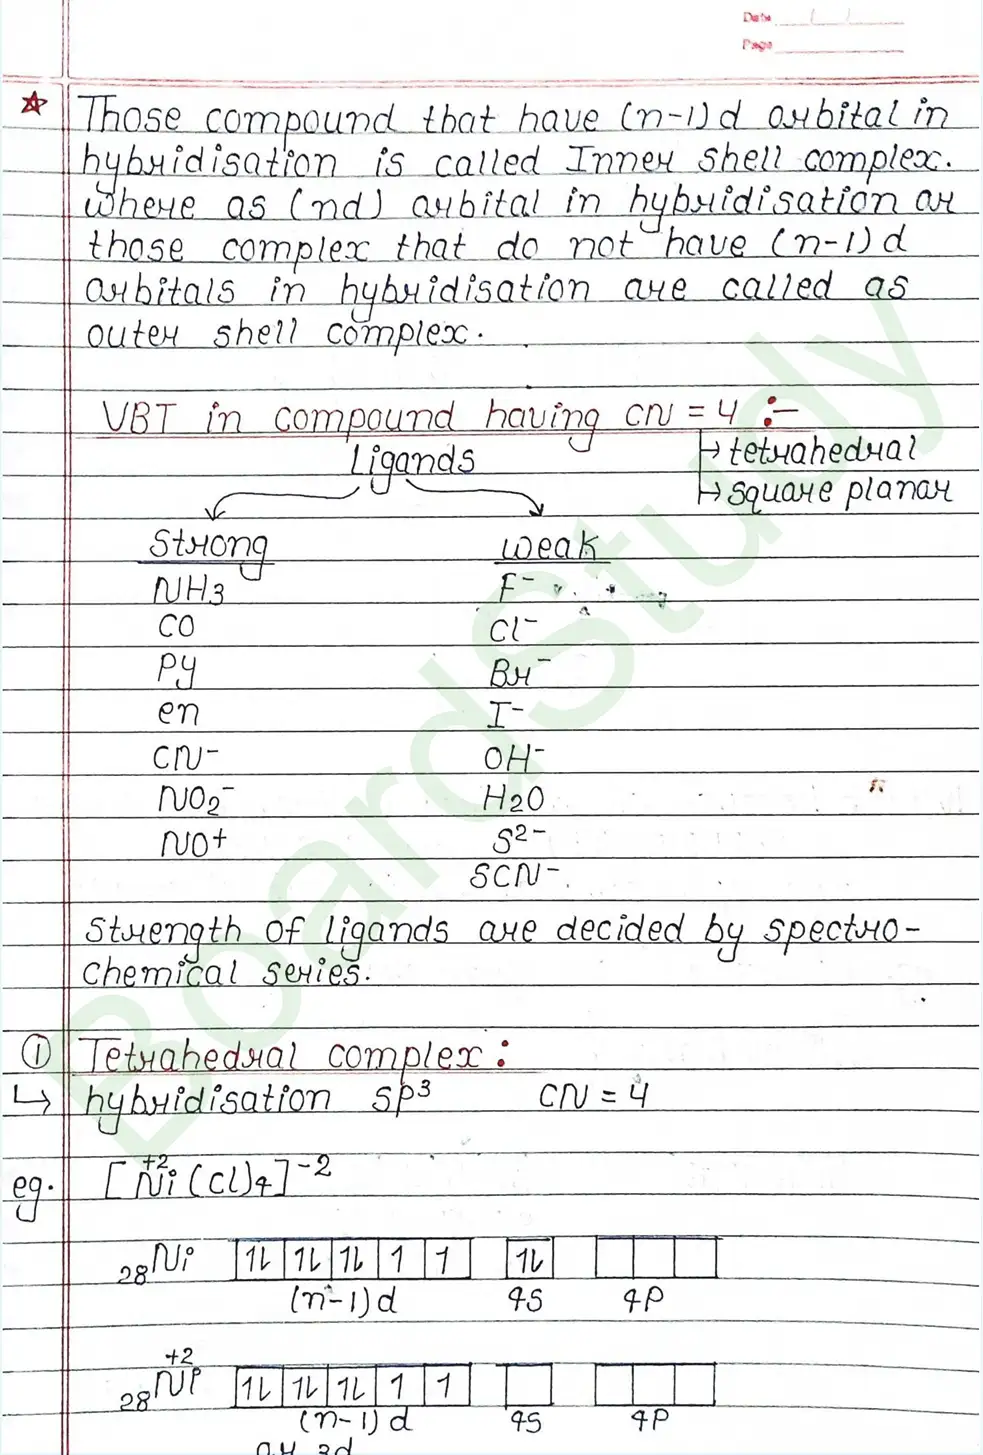 Date
Page
Those compound that have (n-1)d orbital in
hybridisation is called Inner shell complex.
Where as (nd) orbital in hybridisation or
those complex that do not have (n-1)d
orbitals in hybridisation are called as
outer shell complex.
VBT in compound having CN = 4 :-
Ligands
↦ tetrahedral
↦ square planar
Strong weak
NH3 F⁻
CO Cl⁻
Py Br⁻
en I⁻
CN⁻ OH⁻
NO2⁻ H2O
NO+ S²⁻
SCN⁻.
Strength of ligands are decided by spectro-
chemical series.
① Tetrahedral complex :
↳ hybridisation sp³ CN = 4
+2
eg. [Ni(Cl)4]⁻²
28Ni 1L 1L 1L 1 1 1L
(n-1)d 4S 4P
+2
28Ni 1L 1L 1L 1 1
(n-1)d 4S 4P
or 3d
BoardStudy